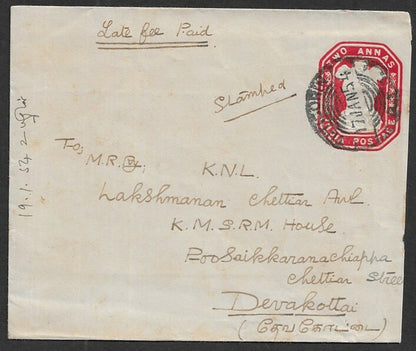 Late fee Paid
Stamped
TWO ANNAS
INDIA POSTAGE
17 JAN 54
19.1.54
To,
M.R.Ry.
K.N.L.
Lakshmanan Chettiar Avl.
K.M.S.R.M. House.
Poosaikkaranachiappa
Chettiar Stree
Devakottai
(தேவகோட்டை)